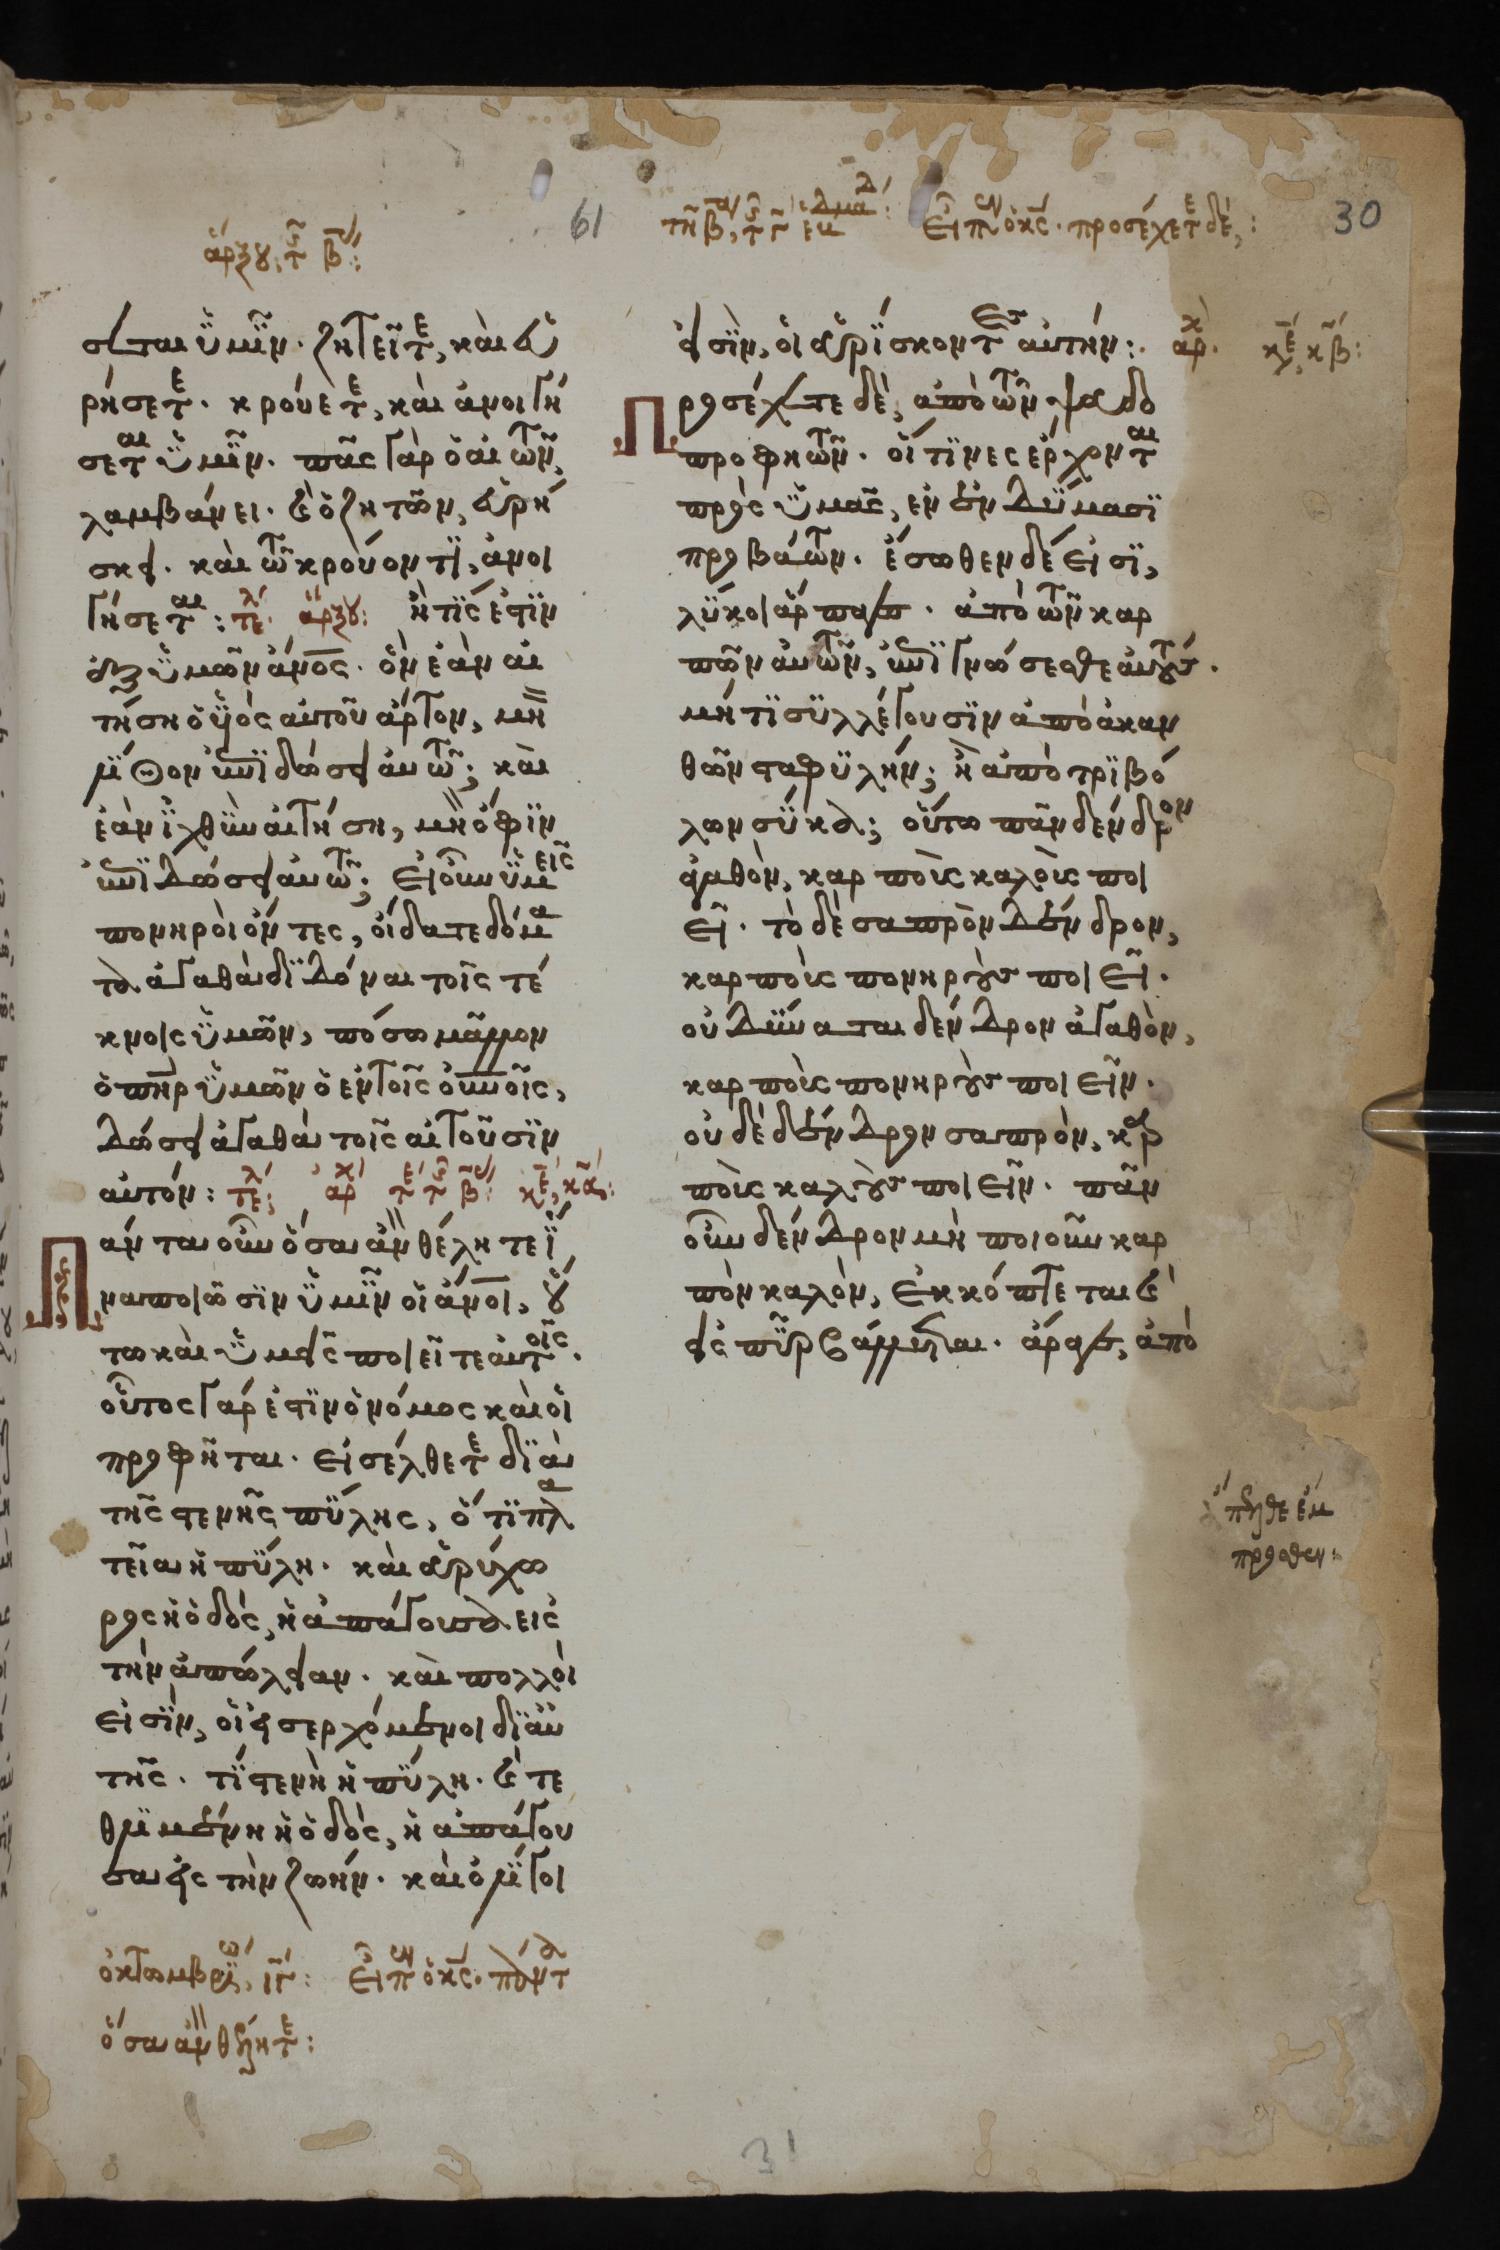 61
30
σεται ὑμῖν· ζητεῖτε, καὶ εὑ
ρήσετε· κρούετε, καὶ ἀνοιγή
σεται ὑμῖν· πᾶς γὰρ ὁ αἰτῶν,
λαμβάνει· καὶ ὁ ζητῶν, εὑρή
σκει· καὶ τῷ κρούοντι, ἀνοι
γήσεται: τέλ ἀρξου: ἢ τίς ἐστιν
ἐξ ὑμῶν ἄνος· ὃν ἐὰν αἰ
τήση ὁ υἱὸς αὐτοῦ ἄρτον, μὴ
λίθον ἐπιδώσει αὐτῶ; καὶ
ἐὰν ἰχθὺν αἰτήση, μὴ ὄφιν
ἐπιδώσει αὐτῶ; εἰ οὖν ὑμεῖς
πονηροὶ ὄντες, οἴδατε δόμα
τα ἀγαθὰ διδόναι τοῖς τέ
κνοις ὑμῶν, πόσω μᾶλλον
ὁ πηρ ὑμῶν ὁ ἐν τοῖς οὐνοῖς,
δώσει ἀγαθὰ τοῖς αἰτοῦσιν
αὐτόν: τέλ
Πάντα οὖν ὅσα ἂν θέλητε ἵ
να ποιῶσιν ὑμῖν οἱ ἄνοι, οὕ
τω καὶ ὑμεῖς ποιεῖτε αὐτοῖς·
οὗτος γάρ ἐστιν ὁ νόμος καὶ οἱ
προφῆται· εἰσέλθετε διὰ
τῆς στενῆς πύλης, ὅτι πλα
τεῖα ἡ πύλη· καὶ εὐρύχω
ρος ἡ ὁδός, ἡ ἀπάγουσα εἰς
τὴν ἀπώλειαν· καὶ πολλοί
εἰσιν, οἱ εἰσερχόμενοι δι' αὐ
τῆς· τί στενὴ ἡ πύλη· καὶ τε
θλιμμένη ἡ ὁδός, ἡ ἀπάγου
σα εἰς τὴν ζωήν· καὶ ὀλίγοι
ὅσα ἂν θέλητε:
εἶπεν ὁ κς· προσέχετε δέ:
εἰσιν, οἱ εὑρίσκοντες αὐτήν:
Προσέχετε δὲ, ἀπὸ τῶν ψευδο
προφητῶν· οἵτινες ἔρχονται
πρὸς ὑμᾶς, ἐν ἐνδύμασι
προβάτων· ἔσωθεν δέ εἰσι,
λύκοι ἅρπαγες· ἀπὸ τῶν καρ
πῶν αὐτῶν, ἐπιγνώσεσθε αὐτούς·
μήτι συλλέγουσιν ἀπὸ ἀκαν
θῶν σταφυλήν; ἢ ἀπὸ τριβό
λων σύκα; οὕτω πᾶν δένδρον
ἀγαθὸν, καρποὺς καλοὺς ποι
εῖ· τὸ δὲ σαπρὸν δένδρον,
καρποὺς πονηροὺς ποιεῖ·
οὐ δύναται δένδρον ἀγαθὸν,
καρποὺς πονηροὺς ποιεῖν·
οὐδὲ δένδρον σαπρὸν, καρ
ποὺς καλοὺς ποιεῖν· πᾶν
οὖν δένδρον μὴ ποιοῦν καρ
πὸν καλὸν, ἐκκόπτεται καὶ
εἰς πῦρ βάλλεται· ἄραγε, ἀπὸ
31